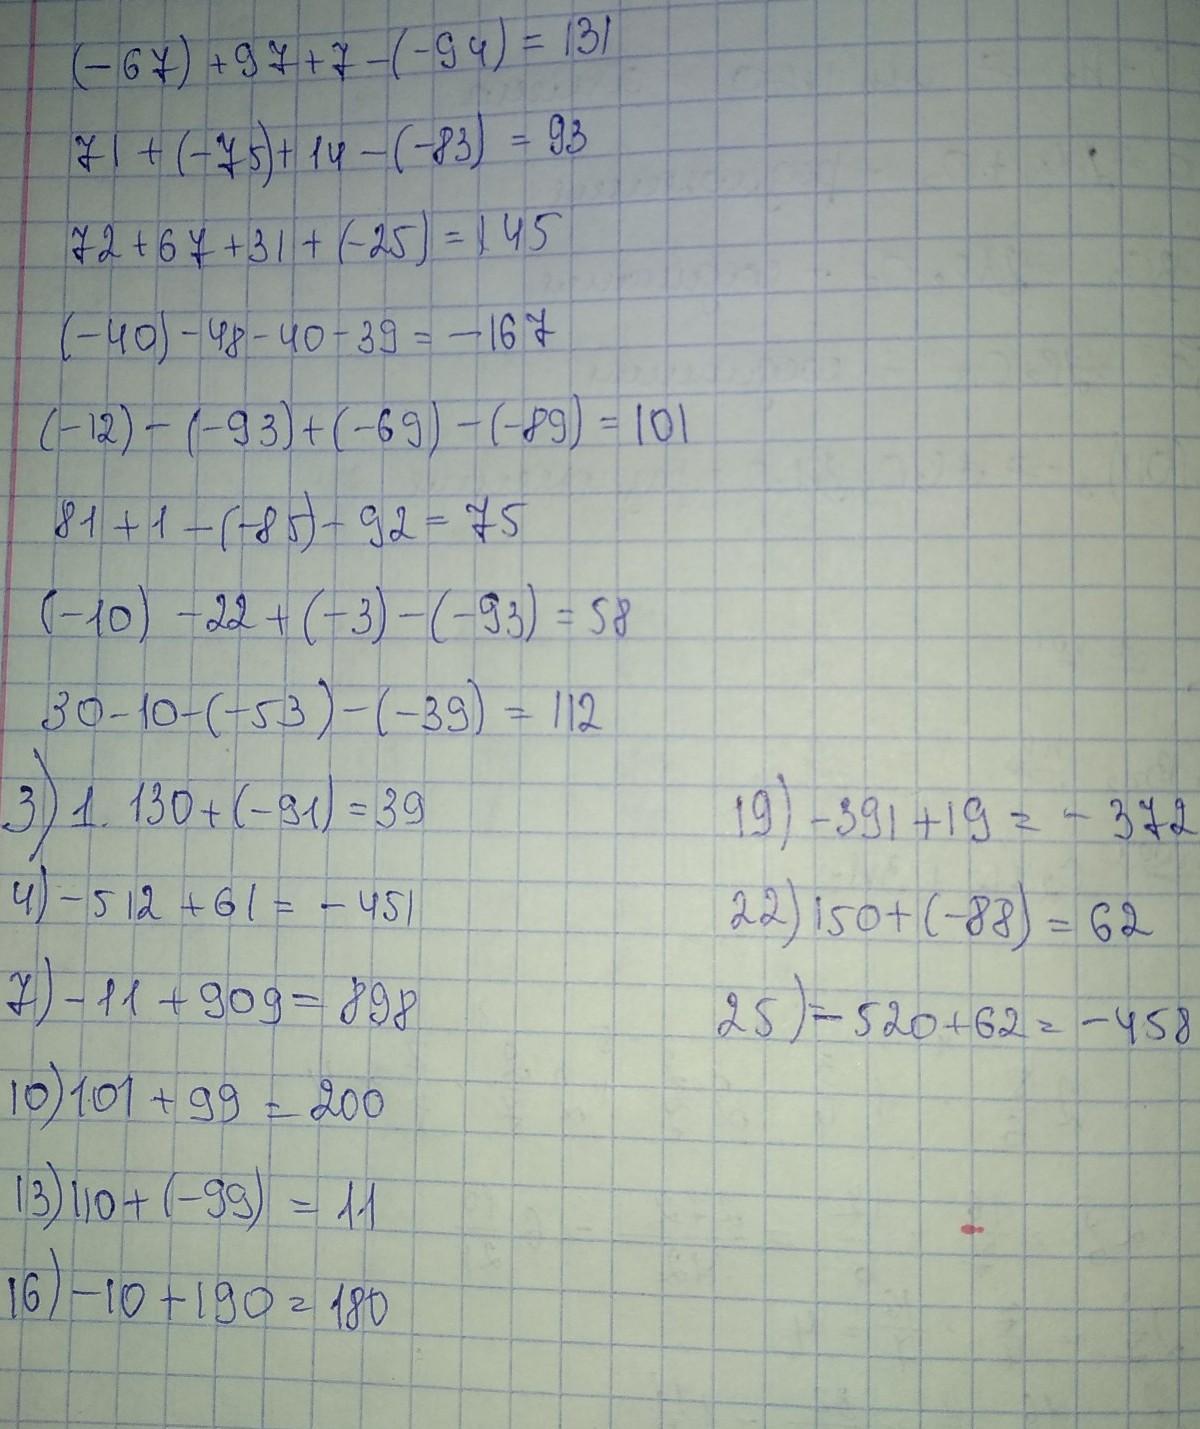 (-67)+97+7-(-94)=131
71+(-75)+14-(-83)=93
72+67+31+(-25)=145
(-40)-48-40-39=-167
(-12)-(-93)+(-69)-(-89)=101
81+1-(-85)-92=75
(-10)-22+(-3)-(-93)=58
30-10-(-53)-(-39)=112
3) 1. 130+(-91)=39
4) -512+61=-451
7) -11+909=898
10) 101+99=200
13) 110+(-99)=11
16) -10+190=180
19) -391+19=-372
22) 150+(-88)=62
25) -520+62=-458